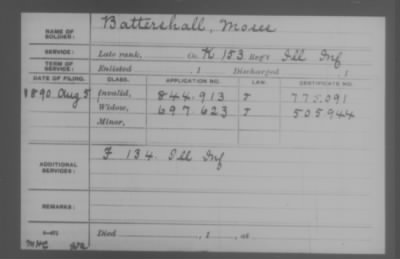 NAME OF SOLDIER: Battershall, Moses
SERVICE: Late rank, Co. K 153 Reg't Ill Inf
TERM OF SERVICE: Enlisted , 1 Discharged , 1
DATE OF FILING. CLASS. APPLICATION NO. LAW. CERTIFICATE NO.
1890 Aug 5 Invalid, 844.913 J 775.091
Widow, 697.623 J 505944
Minor,
ADDITIONAL SERVICES: F 134. Ill Inf
REMARKS:
Died , 1 , at